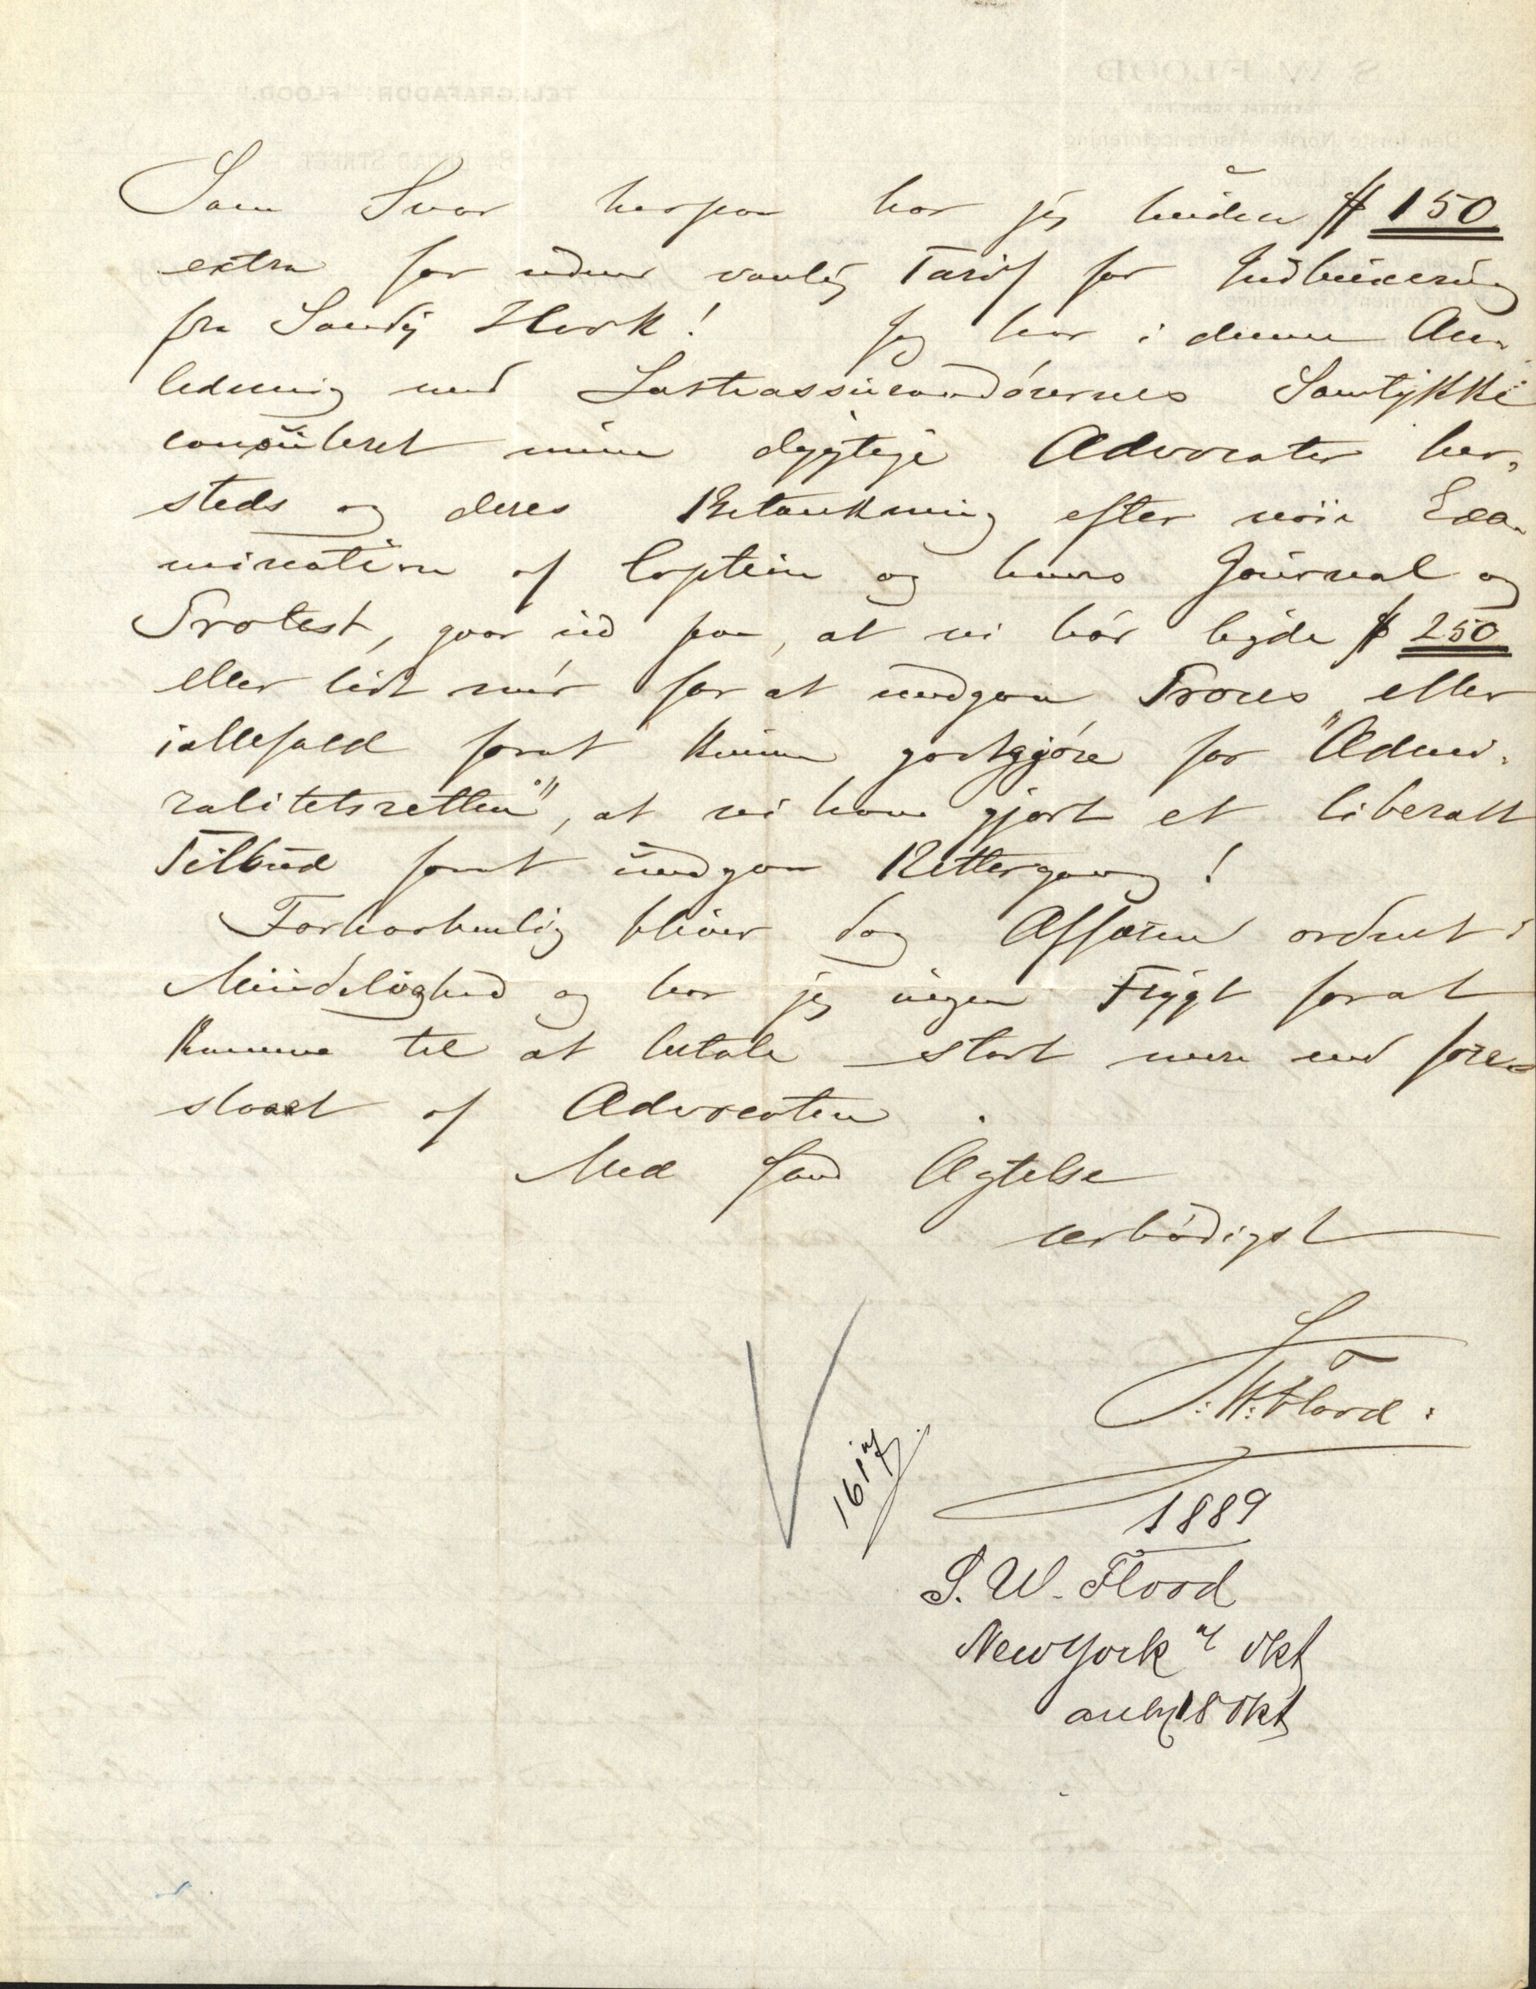 Som Svar herpaa har jeg buden $ 150
extra for uden vanlig Tarif for Indbuxering
fra Sandy Hook! Jeg har i denne An-
ledning med Lasteassurandörernes Samtykke
consuleret mine dygtige Advocater her-
steds og deres Betænkning efter nöie Exa-
mination af Captein og hans Journal og
Protest, gaar ud paa, at vi bör byde $ 250
eller lidt mér for at undgaa Proces eller
iallefald forat kunne godtgjöre for "Admi-
ralitetsretten", at vi have gjort et liberalt
Tilbud forat undgaa Rettergang!
Forhaabentlig bliver dog Affæren ordnet i
Mindelighed og har jeg ingen Frygt forat
komme til at betale stort mere end fore-
slaaet af Advocaten.
Med sand Agtelse
ærbödigst
S. W. Flood.
16 1/4
1889
S. W. Flood
New York 4/ Okt
ank 18 Okt